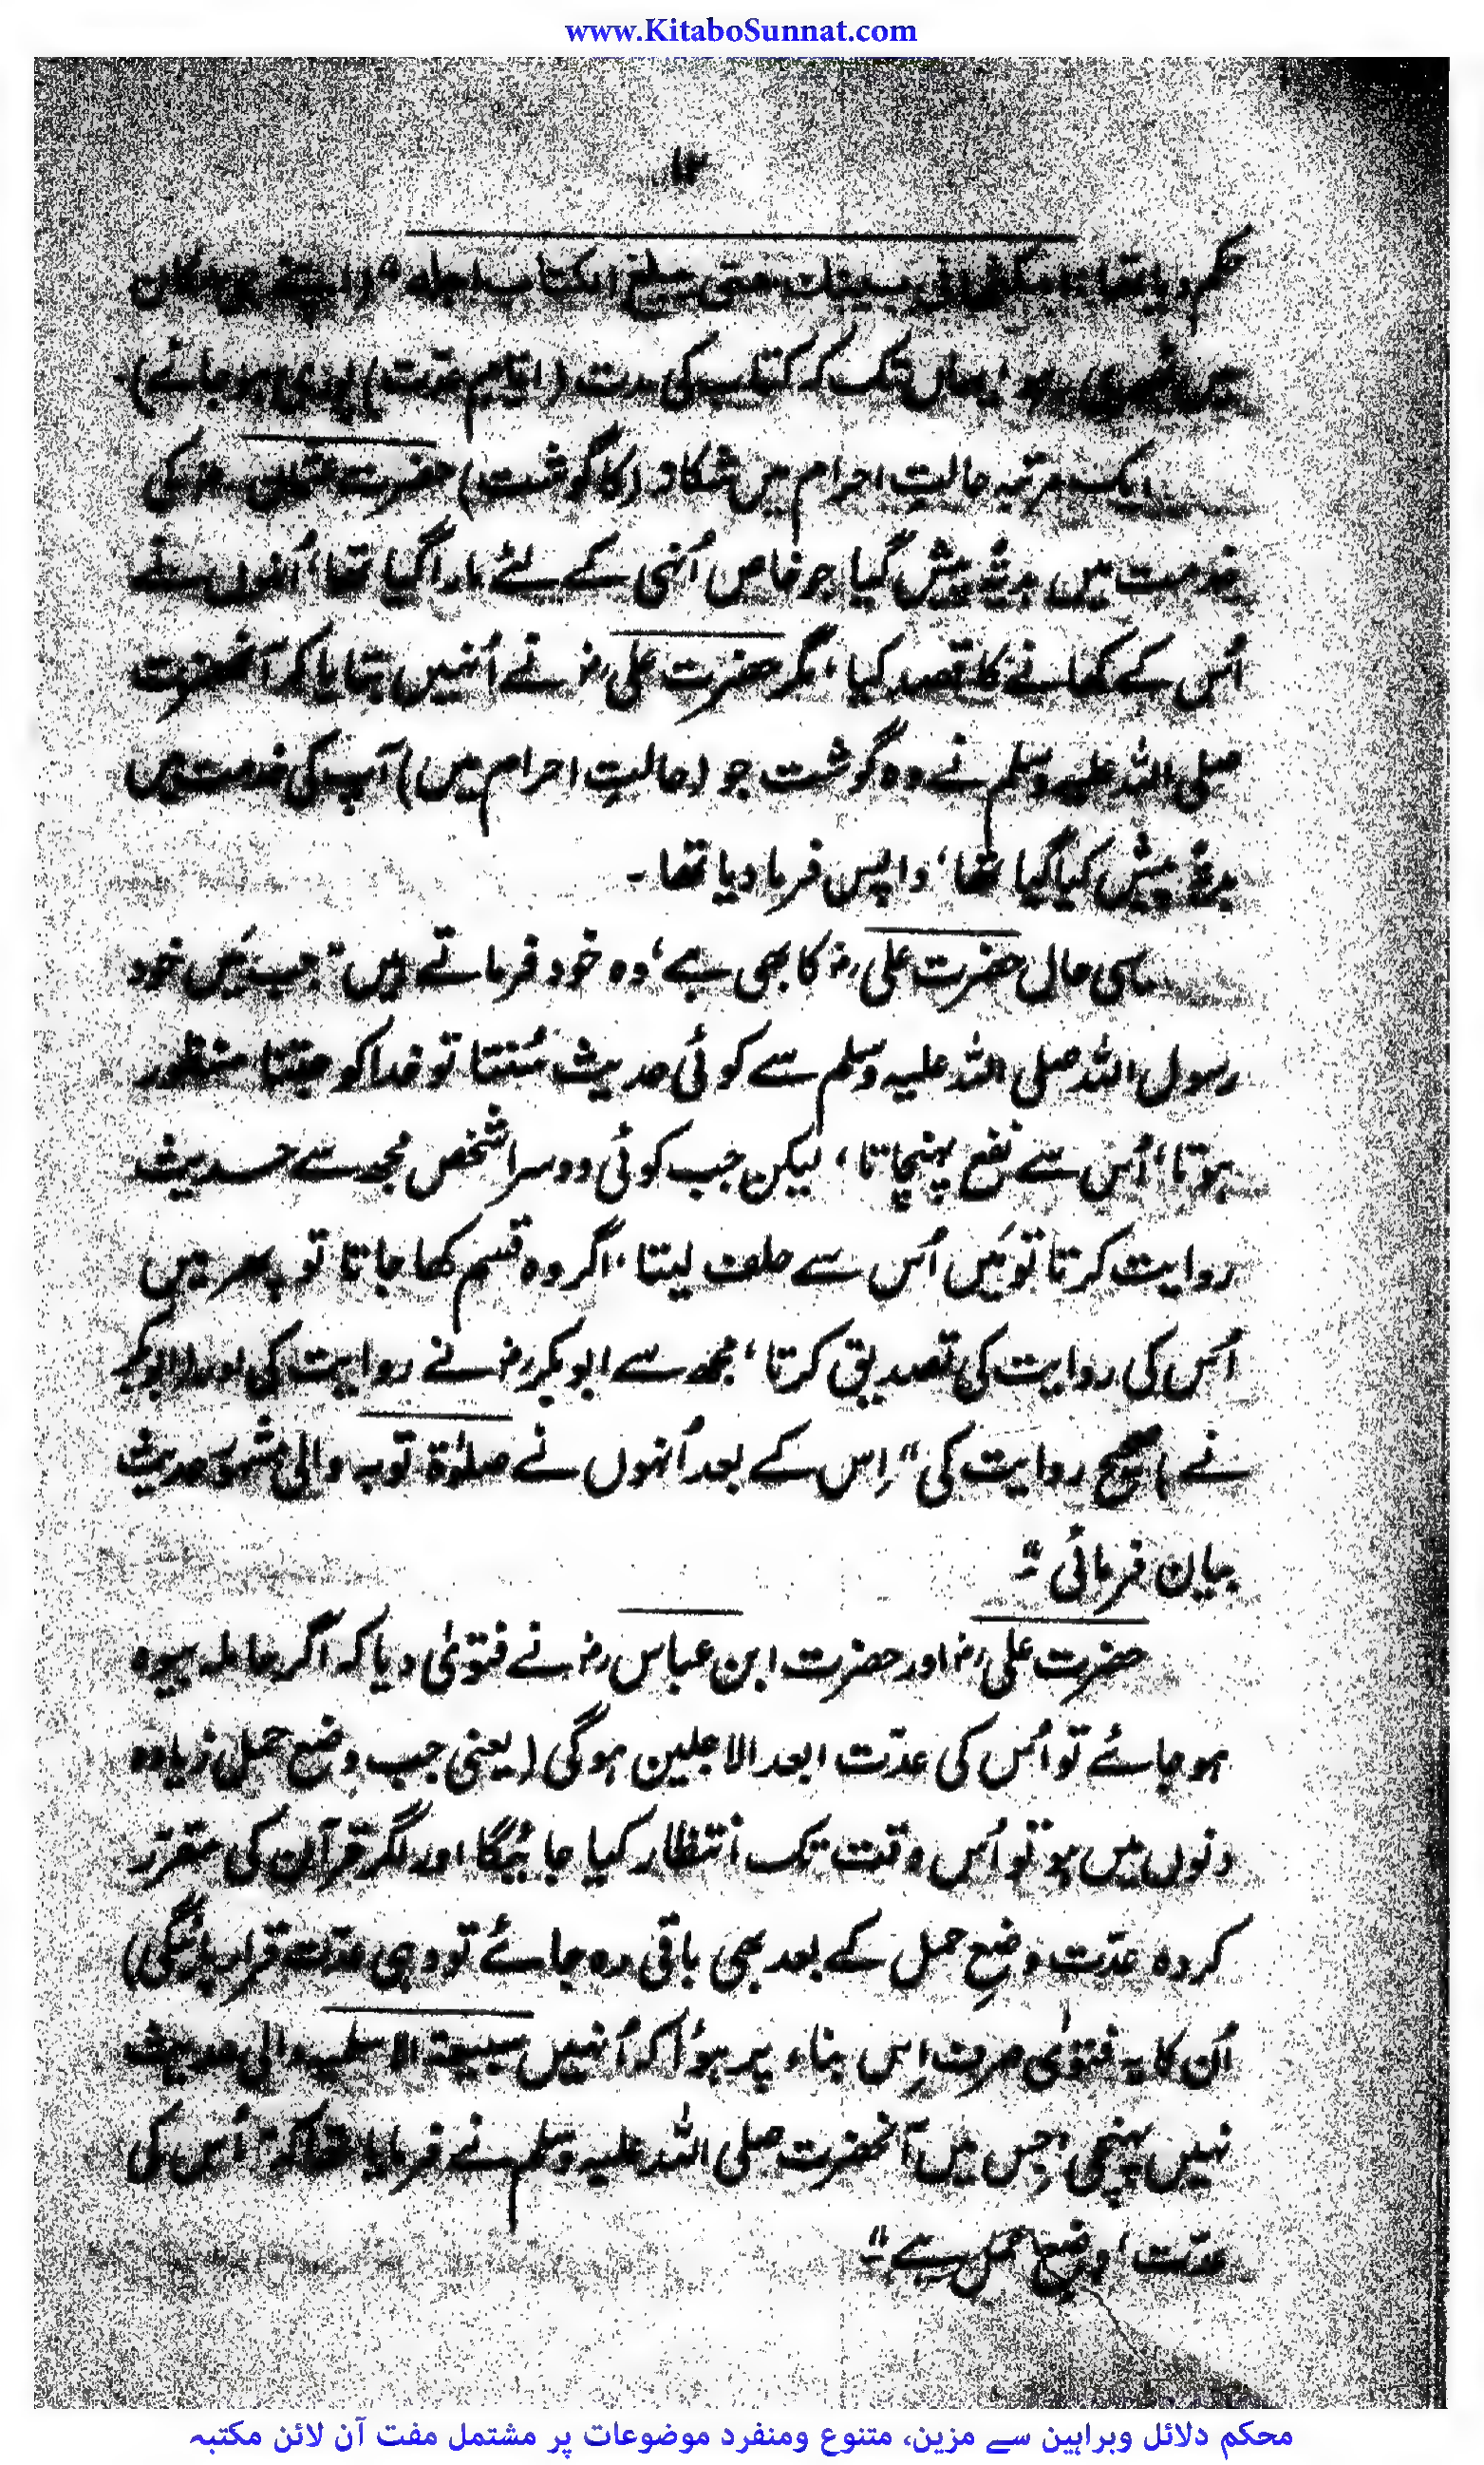 www.KitaboSunnat.com
۱۲
حکم دیا تھا: امکثی فی بیتك حتی یبلغ الکتاب اجله" (اپنے ہی مکان
میں ٹھہری رہو، یہاں تک کہ کتاب کی مدت (ایّامِ عدّت) پوری ہو جائے)۔
ایک مرتبہ حالتِ احرام میں شکار (کا گوشت) حضرت عثمان رضؓ کی
خدمت میں ہدیۃً پیش گیا جو خاص اُنہی کے لئے مارا گیا تھا، اُنہوں نے
اُس کے کھانے کا قصد کیا، مگر حضرت علی رضؓ نے اُنہیں بتایا کہ آنحضرت
صلی اللہ علیہ وسلم نے وہ گوشت جو (حالتِ احرام میں) آپ کی خدمت میں
ہدیۃً پیش کیا گیا تھا، واپس فرما دیا تھا۔
یہی حال حضرت علی رضؓ کا بھی ہے، وہ خود فرماتے ہیں "جب مَیں خود
رسول اللہ صلی اللہ علیہ وسلم سے کوئی حدیث سُنتا تو خدا کو جتنا منظور
ہوتا، اُس سے نفع پہنچاتا، لیکن جب کوئی دوسرا شخص مجھ سے حدیث
روایت کرتا تو مَیں اُس سے حلف لیتا، اگر وہ قسم کھا جاتا تو پھر میں
اُس کی روایت کی تصدیق کرتا، مجھ سے ابو بکر رضؓ نے روایت کی اور ابو بکر
نے صحیح روایت کی" اِس کے بعد اُنہوں نے صلوٰۃ توبہ والی مشہور حدیث
بیان فرمائی"۔
حضرت علی رضؓ اور حضرت ابن عباس رضؓ نے فتویٰ دیا کہ اگر حاملہ بیوہ
ہو جائے تو اُس کی عدّت ابعد الاجلین ہوگی (یعنی جب وضع حمل زیادہ
دنوں میں ہو تو اُس وقت تک انتظار کیا جائیگا اور اگر قرآن کی مقرّر
کردہ عدّت وضعِ حمل کے بعد بھی باقی رہ جائے تو وہی عدّت قرار پائیگی)
اُن کا یہ فتویٰ صرف اِس بناء پر ہوُا کہ اُنہیں سبیعۃ الاسلمیہ والی حدیث
نہیں پہنچی، جس میں آنحضرت صلی اللہ علیہ وسلم نے فرمایا تھا کہ "اُس کی
عدّت، وضع حمل ہے"۔
محکم دلائل وبراہین سے مزین، متنوع ومنفرد موضوعات پر مشتمل مفت آن لائن مکتبہ